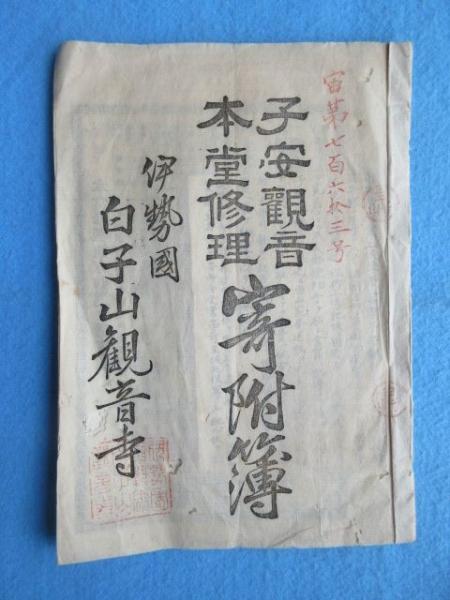 宙第七百六拾三号
子安觀音
本堂修理
寄附簿
伊勢國
白子山観音寺